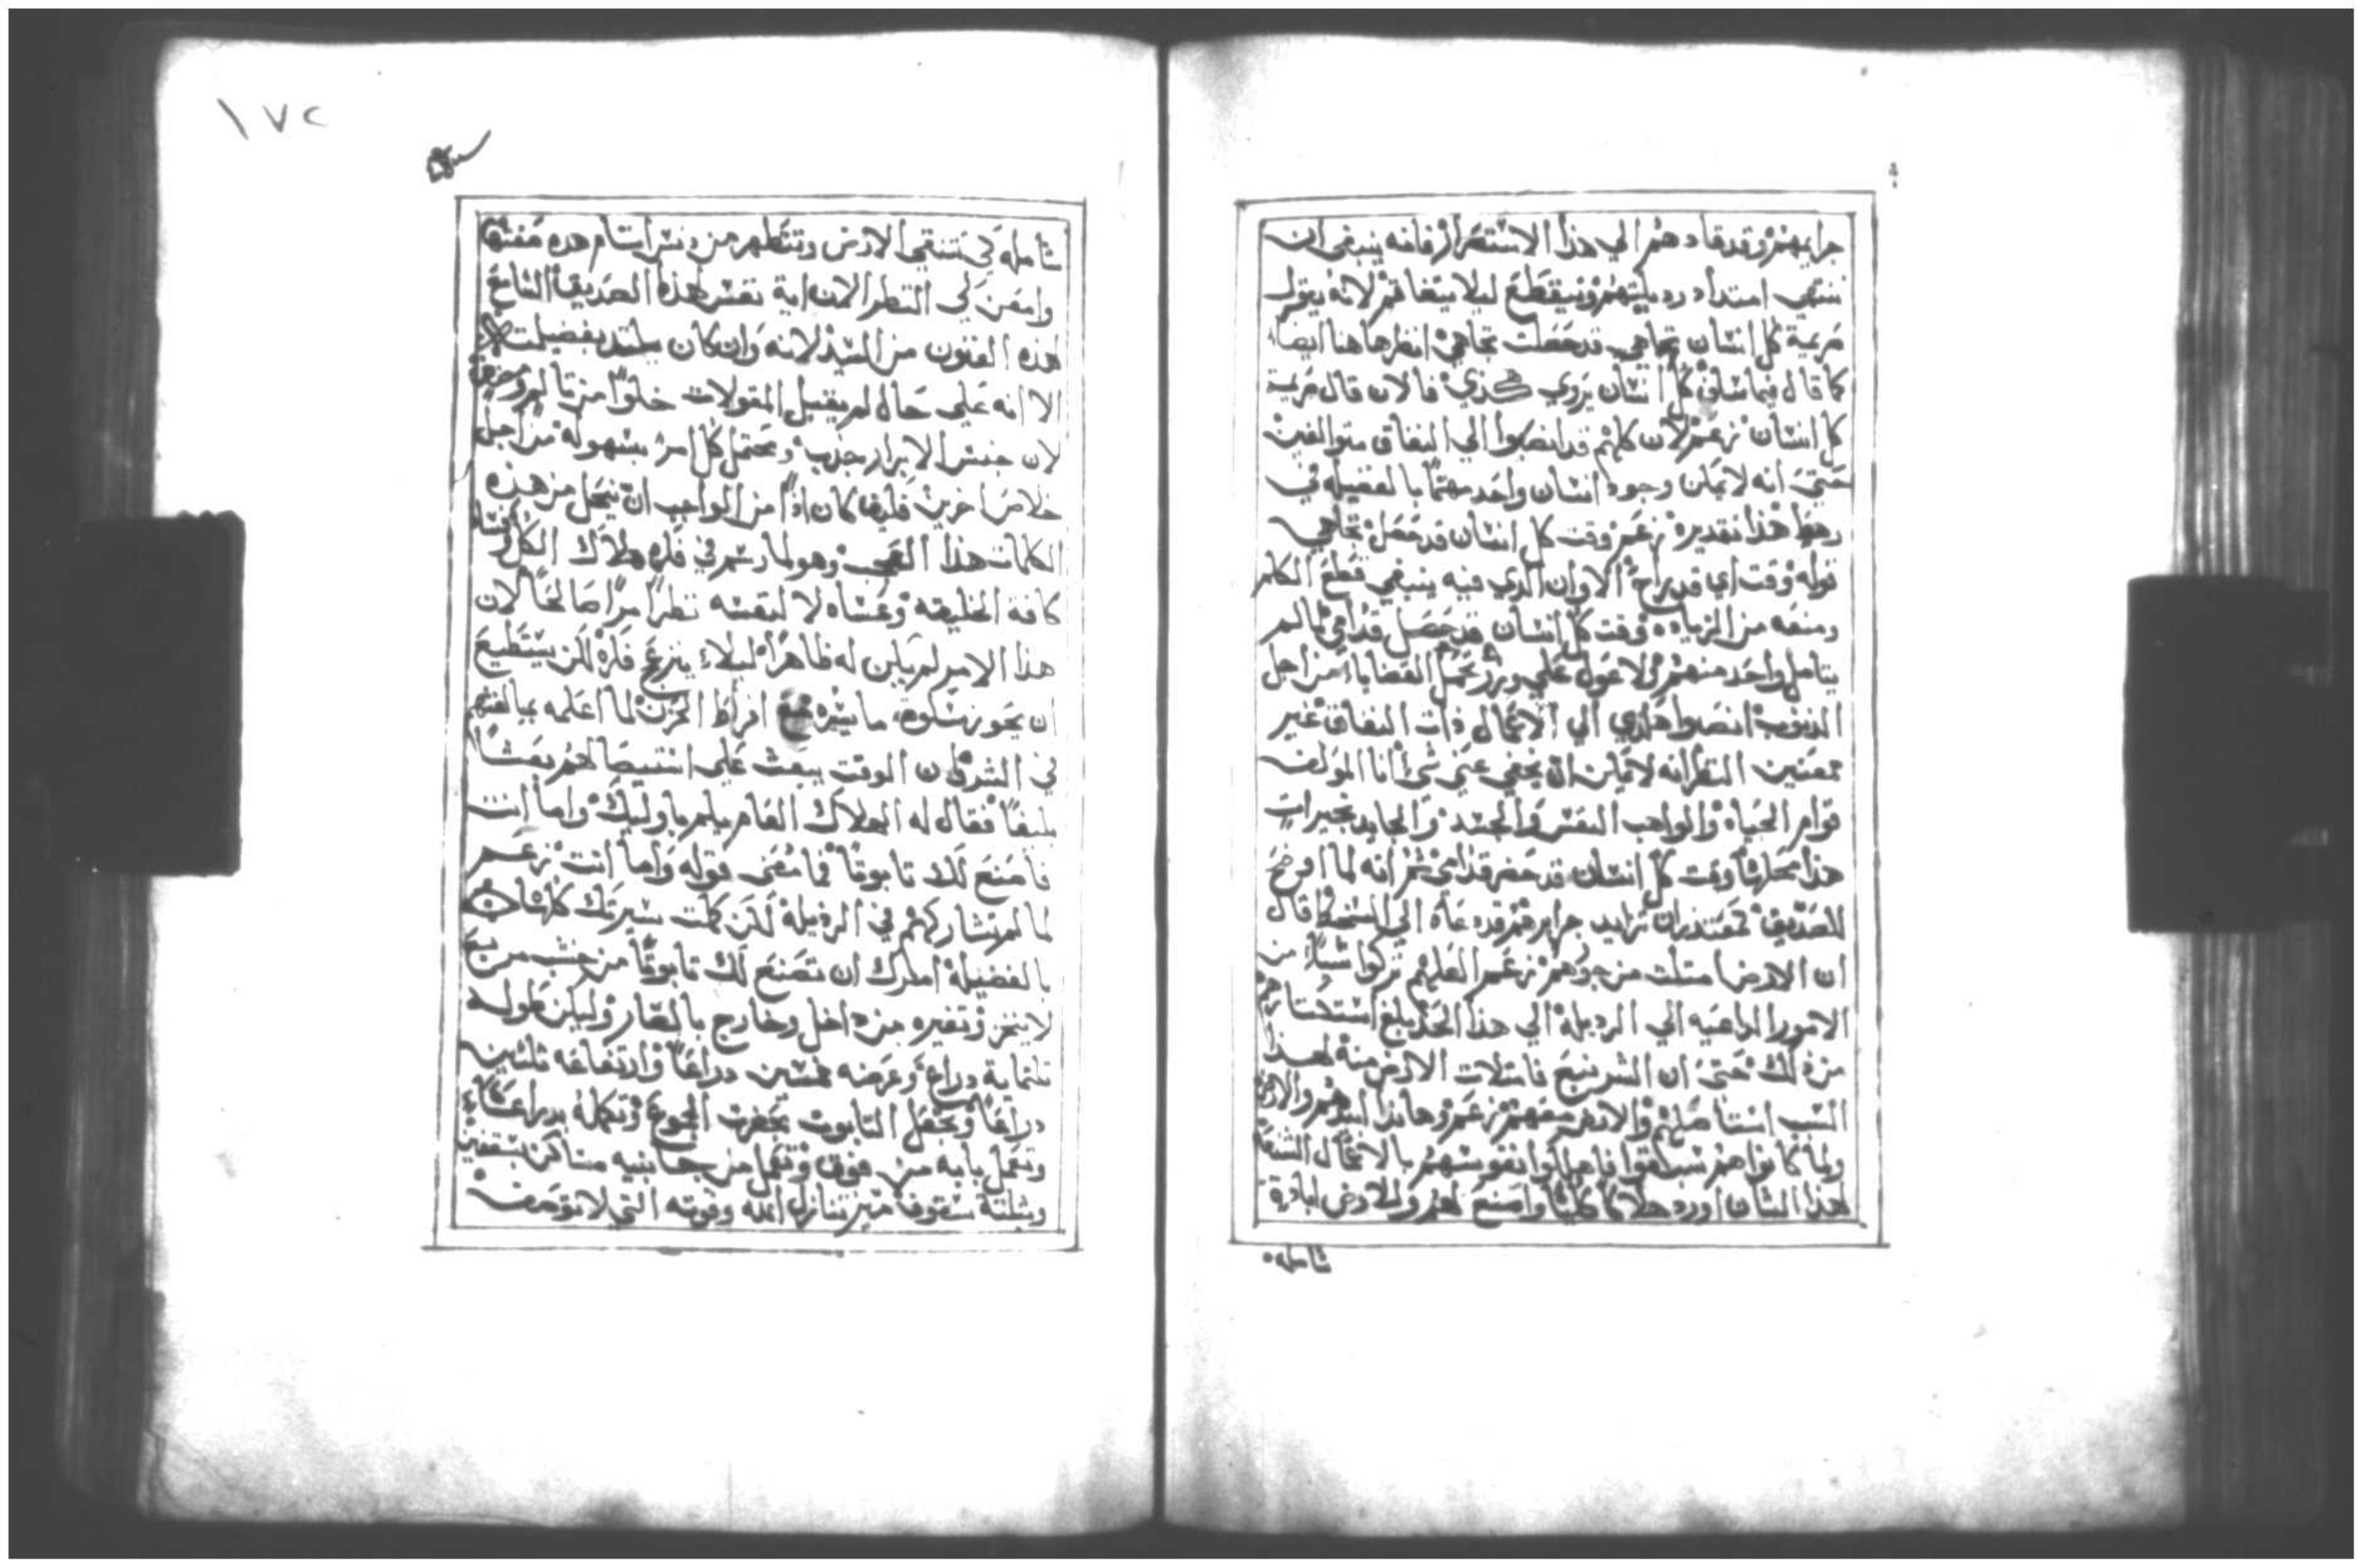 جرايمهم وقد قادهم الي هذا الاستقصا فانه ينبغي ان
ننتهي امتداد رديلتهم ونيقطع ليلا يتفاقم لانه يقول
كل انسان تجاهي قد حصلت تجاهي انظرها هنا ايضا
كما قال فيما سلف كل انسان يروي كذي فالان قال
كل انسان زعم لان كلهم قد انصبوا الي النفاق متوالفين
حتي انه لا يمكن وجود انسان واحد مهتما بالفضيله في
رهط هذا تقديره زعم وقت كل انسان قد حصل تجاهي
قوله وقت اي قد الاوان الدي فيه ينبغي قطع الكلم
ومنعه من الزياده وقت كل انسان قد حصل قدامي
يتامل واحد منهم ولا عول علي القضايا من اجل
الذنوب انصبوا هكذي الي الاعمال ذات النفاق غير
ممعنين النظر انه لا يمكن ان يخفي عني شي انا المولف
قوام الحياه والواهب النفس والجسد والجايد بخيرات
هذا وقت كل انسان قد حضر قدامي ثم انه لما اوضح
للصديق تزايد جرايرهم قد دعاه الي السخط قال
ان الارض امتلت من جورهم زعم تركوا شيا من
الامور الداعيه الي الرديلة الي هذا الحد بلغ
من ذلك حتي ان الشر نبع فامتلات الارض منه لهذا
السبب استاصلهم والارض معهم زعم وها ندا ابيدهم والارض
ولما كانوا هم سبقوا فاهلكوا نفوسهم بالاعمال
هذا الشان اورد هلاكا كليا واصنع لهم وللارض ابادة
شامله
١٧٢
شامله كي تتنقي الارض وتتطهر من دنس
وامعن لي النظر الان اية نفس هذه الصديق السامع
هذه الفنون من السيد لانه وان كان يلتد بفضيلته
الا انه علي حال لم يقبل المقولات خلوا من تالم
لان جنس الابرار ويحتمل كل امر بسهوله من اجل
خلاص اخرين فكيف كان اذا من الواجب ان يتجل من هذه
الكلمات هذا العجيب وهو لما رسم في فكره هلاك الكل
كافة الخليقه وعساه لا لنفسه نظرا مرا صالحا لان
هذا الامر لم يكن له ظاهرا ليلا ينزع فكره لكن يستطيع
ان يحوز سلوة ما افراط الحزن لما اعلمه بمبالغتهم
في الشر كان الوقت يبعث علي استيصالهم بعثا
بليغا فقال له الهلاك العام يلم باوليك واما انت
فاصنع لك تابوتا فما معني قوله واما انت زعم
لما لم تشاركهم في الرذيلة لكن كملت سيرتك كلها
بالفضيلة امرك ان تصنع لك تابوتا من خشب مربع
لا ينخر وتقيره من داخل وخارج بالقار وليكن طوله
تلتماية دراع وعرضه خمسين دراعا وارتفاعه تلتين
دراعا وتجعل التابوت الجموع وتكمله بدراع
وتعمل بابه من فوق وتعمل من جانبيه مساكن بسقفين
وبثلثة سقوف ميز تنازل الله وقوته التي لا توصف